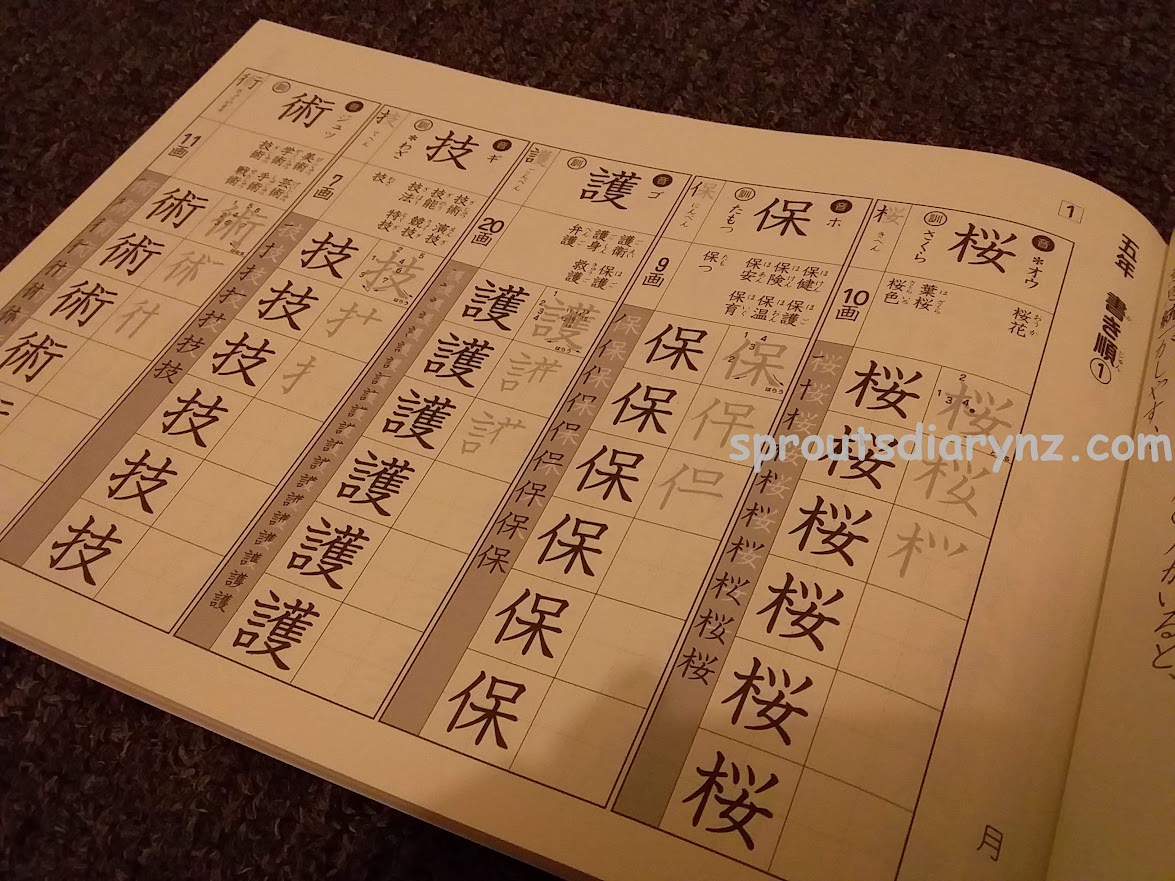 1
五年 書き順①
音 *オウ
桜
訓 さくら
桜 きへん
桜花
葉桜
桜色
10画
桜 桜 桜 桜 桜 桜 桜
音 ホ
保
訓 たもつ
保 にんべん
保健 保護
保険 保温
保安 保育
保つ
9画
保 保 保 保 保 保 保
音 ゴ
護
訓
ごんべん
護衛 保護
護身 救護
弁護
20画
護 護 護 護 護 護
音 ギ
技
訓 *わざ
技 てへん
技術 演技
技能 競技
技法 特技
技
7画
技 技 技 技 技 技
音 ジュツ
術
訓
美術 芸術
学術 手術
技術 戦術
11画
術 術 術 術
月
sproutsdiarynz.com